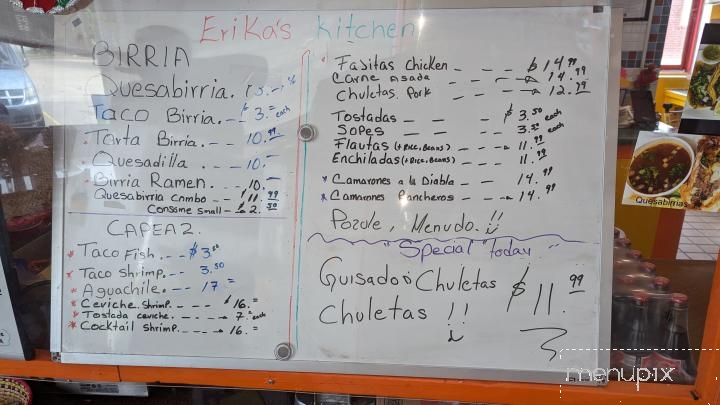 Erika's kitchen
BIRRIA
Quesabirria.
Taco Birria. - - $3.= each
Torta Birria. - - 10.99
Quesadilla - - 10.-
Birria Ramen. - - 10.-
Quesabirria combo - - $11.99
Consome small - - 2.50
CAPEA2.
Taco Fish. - - $3.50
Taco shrimp. - - 3.50
Aguachile. - - 17.=
Ceviche shrimp. - - - $16.=
Tostada ceviche. - - - 7.= each
Cocktail shrimp. - - - 16.=
Fajitas Chicken - - - $14.99
Carne Asada - - - 14.99
Chuletas Pork - - - 12.99
Tostadas - - - $3.50 each
Sopes - - - 3.50 each
Flautas (+Rice, Beans) - - - 11.99
Enchiladas (+Rice, Beans) - - 11.99
Camarones a la Diabla - - 14.99
Camarones Rancheros - - 14.99
Pozole, Menudo. !!
"Special Today"
Guisado: Chuletas $11.99
Chuletas !!
Quesabirrias
menupix